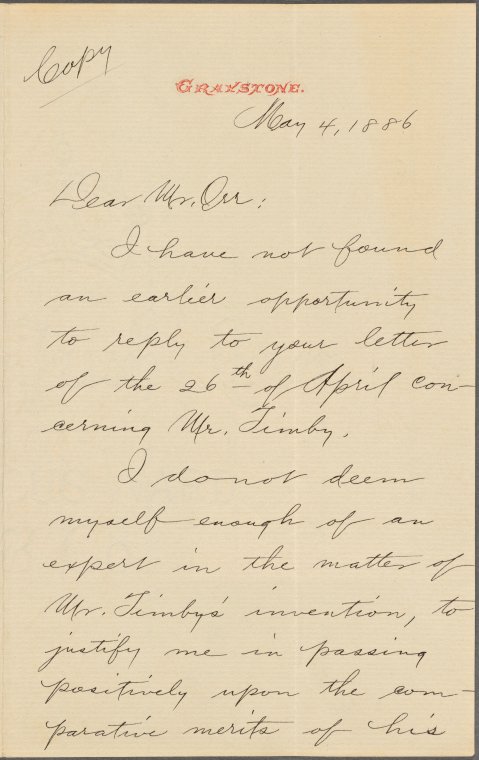 Copy
GRAYSTONE.
May 4, 1886
Dear Mr. Orr:
I have not found
an earlier opportunity
to reply to your letter
of the 26th of April con-
cerning Mr. Timby.
I do not deem
myself enough of an
expert in the matter of
Mr. Timby's invention, to
justify me in passing
positively upon the com-
parative merits of his